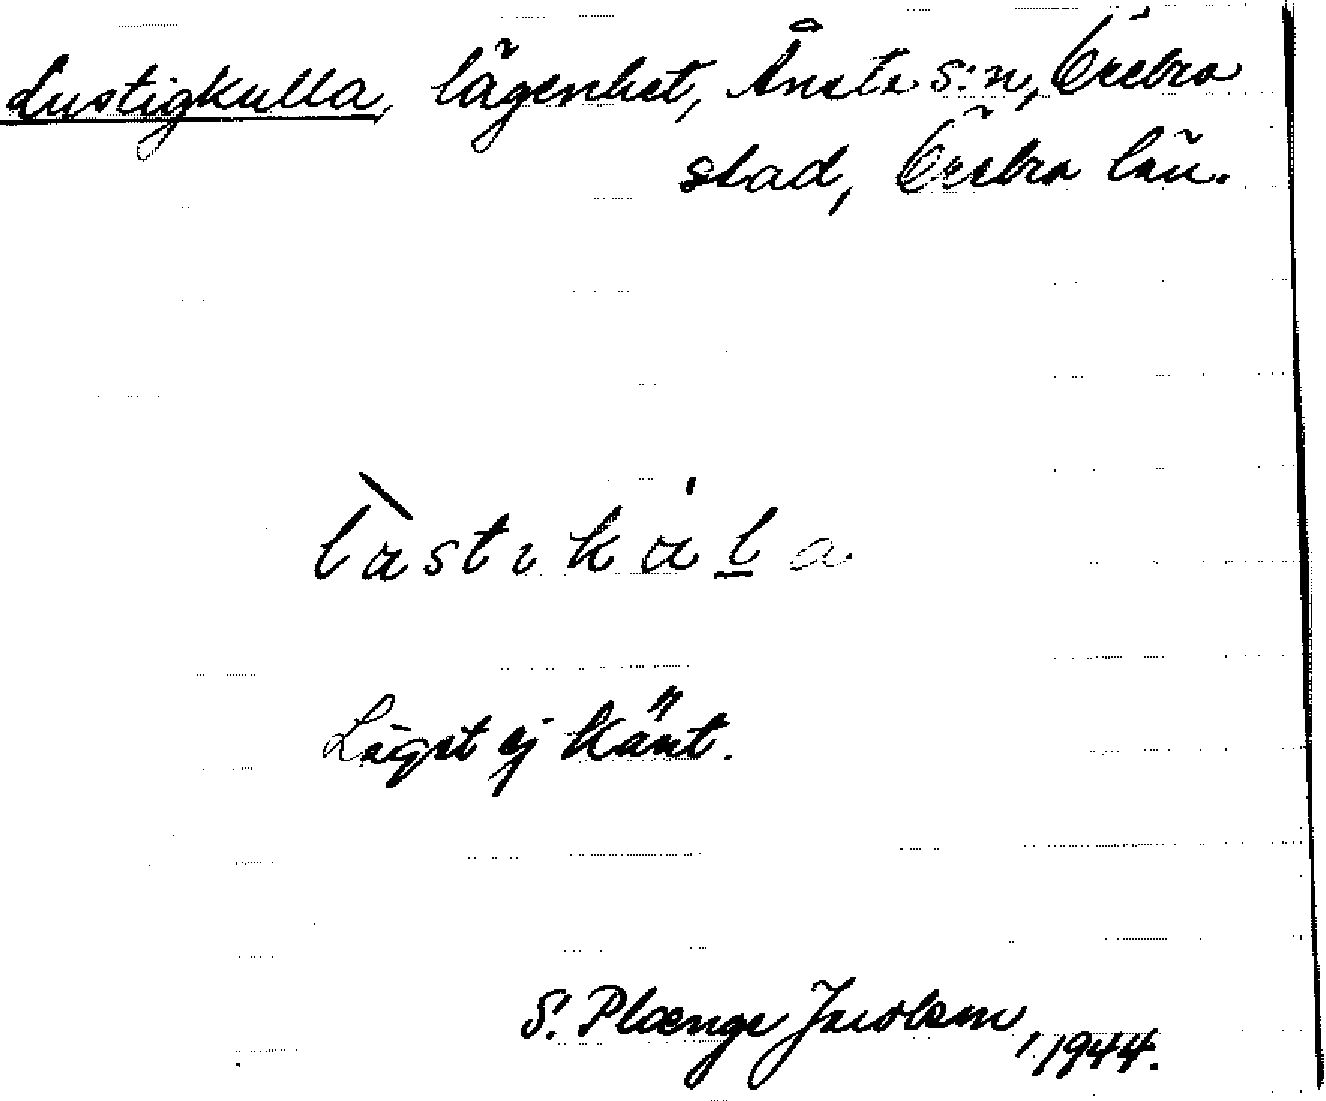 Lustigkulla, lägenhet, Ånsta s:n, Örebro
stad, Örebro län.
l̀astikáḻa
Läget ej känt.
S. Plænge Jacobson, 1944.